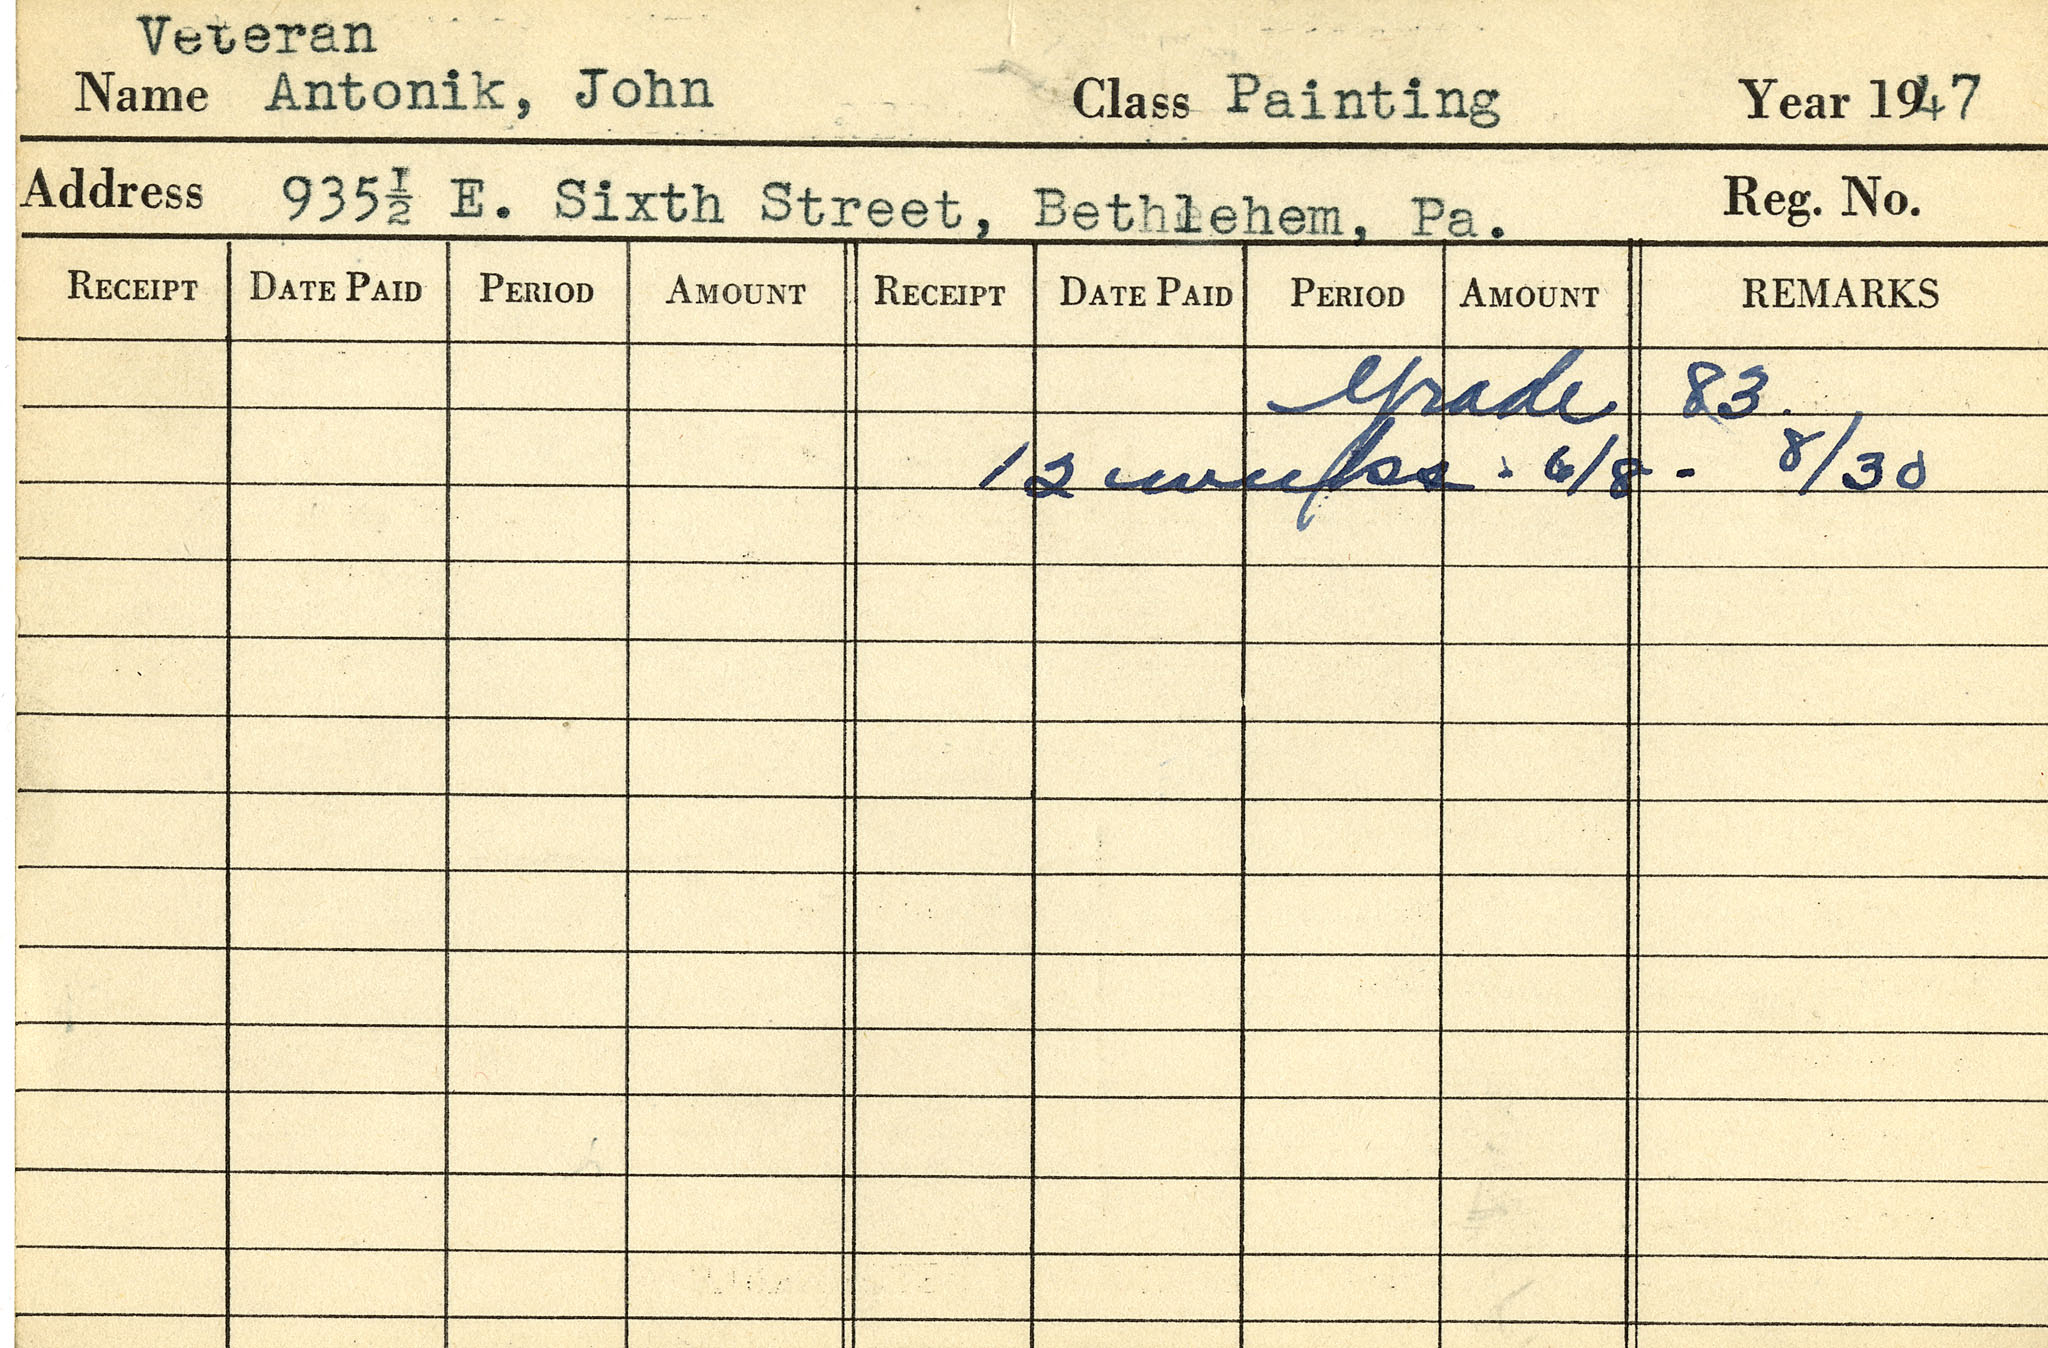 Veteran
Name Antonik, John Class Painting Year 1947
Address 935½ E. Sixth Street, Bethlehem, Pa. Reg. No.
RECEIPT DATE PAID PERIOD AMOUNT RECEIPT DATE PAID PERIOD AMOUNT REMARKS
Grade 83.
12 weeks - 6/8 - 8/30